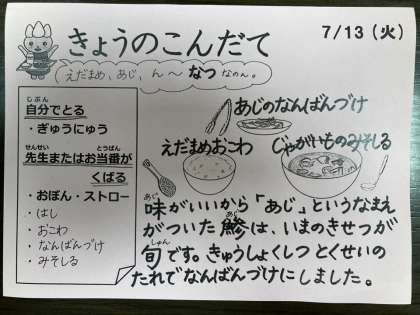 きょうのこんだて
7/13（火）
えだまめ、あじ、ん〜 なつ なのん。
自分でとる
じぶん
・ぎゅうにゅう
先生またはお当番が
せんせい とうばん
くばる
・おぼん・ストロー
・はし
・おこわ
・なんばんづけ
・みそしる
あじのなんばんづけ
えだまめおこわ
じゃがいものみそしる
味がいいから「あじ」というなまえ
あじ
がついた鯵は、いまのきせつが
あじ
旬です。きゅうしょくしつとくせいの
しゅん
たれでなんばんづけにしました。